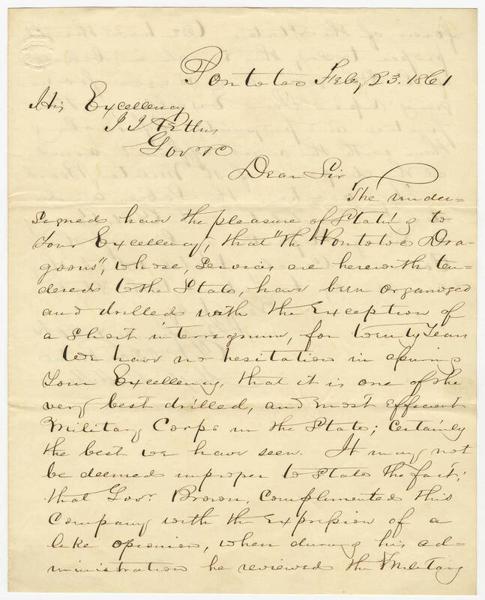 Pontotoc Feby 23. 1861
His Excellency
J J Pettus
Govr &c
Dear Sir
The under-
signed have the pleasure of stating to
Your Excellency, that "the Pontotoc Dra-
goons", whose, Services are herewith ten-
dered to the State, have been organized
and drilled with the Exception of
a short interregnum, for twenty Years
We have no hesitation in
Your Excellency, that it is one of the
very best drilled, and most efficient
Military Corps in the State; Certainly
the best we have seen. It may not
be deemed improper to State the fact;
that Govr Brown, Complimented this
Company with the Expression of a
like opinion, when during his ad-
ministration he reviewed the Military